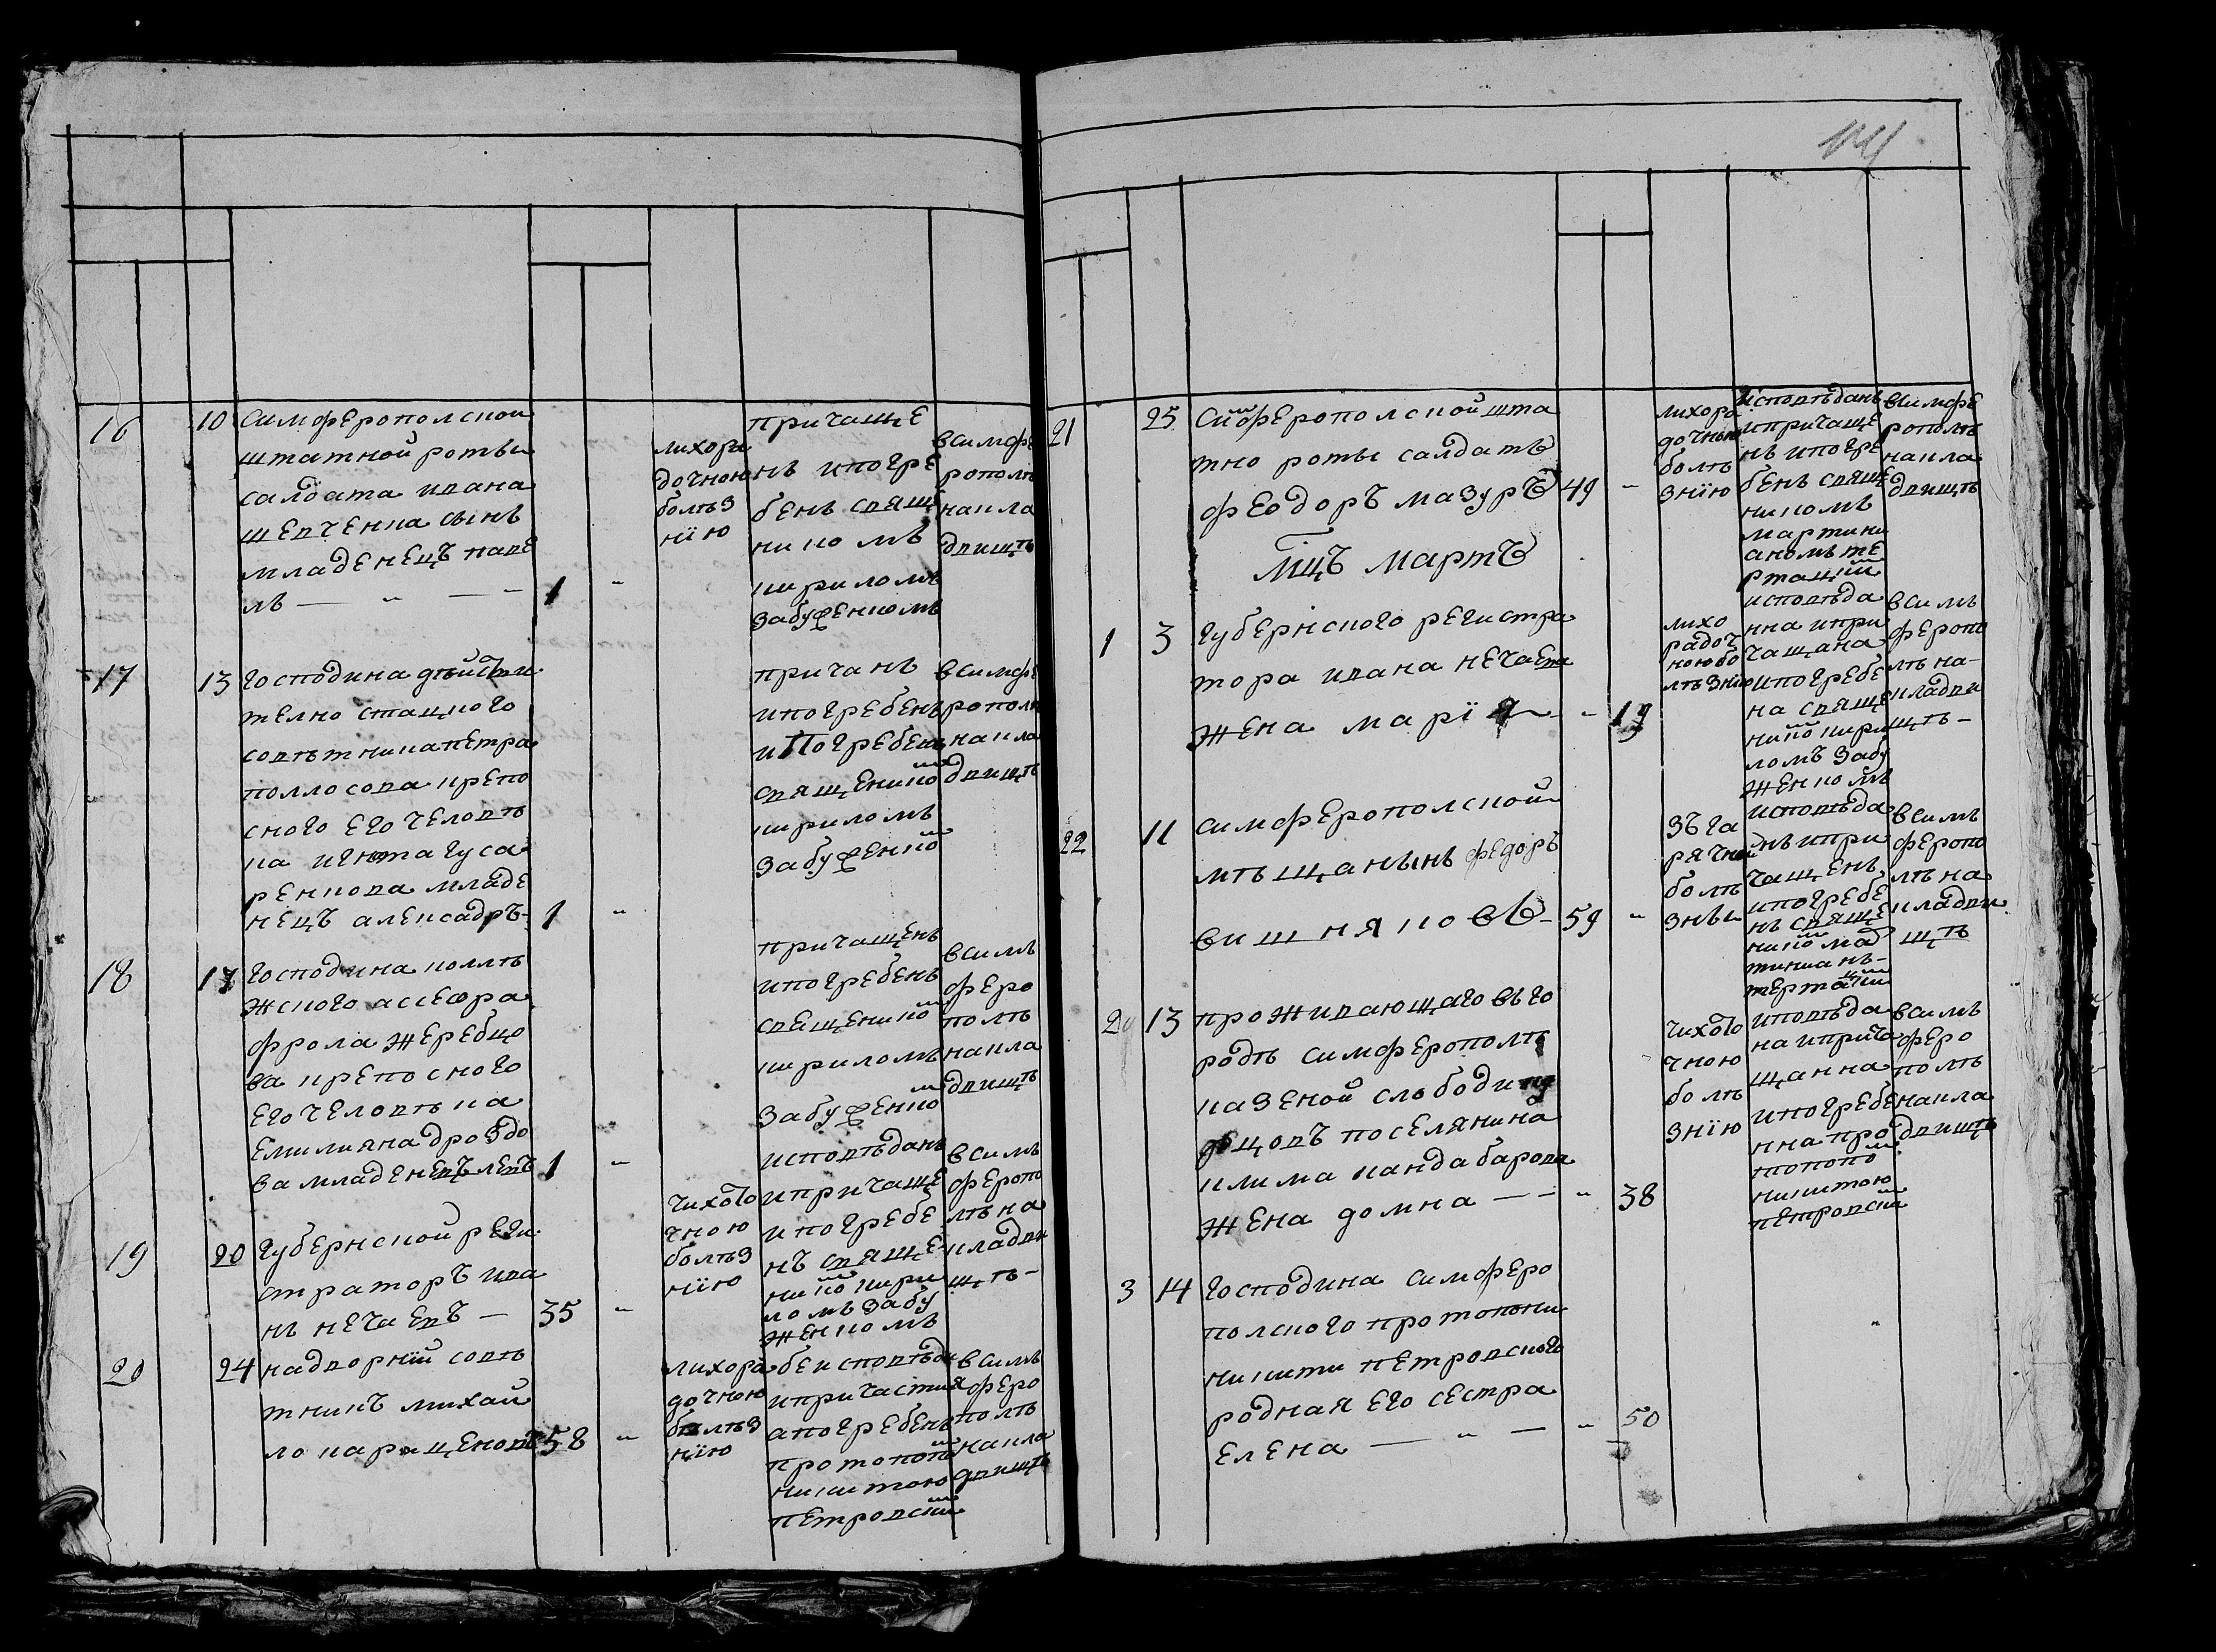 16 10 Симферополской
штатной роты
салдата ивана
шевченка сынъ
младенецъ паве
лъ — " — " 1 "
лихора
дочною
болѣз
нїю
причаще
нъ ипогре
бенъ свяще
никомъ
кириломъ
забуженкомъ
всимфе
рополѣ
накла
двищѣ
17 13 Господина дѣйстви
телно стацкого
совѣтника петра
крепо
сного его человѣ
ка игнота гуса
ренкова младе
нецъ алексадръ- 1 "
причанъ
ипогребенъ
ипогребенъ
священико
кириломъ
забуженко
всимфе
рополѣ
накла
двищѣ
18 17 Господина коллѣ
жского ассесора
фрола жеребцо
ва крепосного
его человѣка
емилияна дроздо
ва младенецъ левъ 1 "
причащенъ
ипогребенъ
свещенико
кириломъ
забуженко
всимъ
феро
полѣ
накла
двищѣ
19 20 Губернской реги
страторъ ива
нъ нечаевъ — 35 "
чихото
чною
болѣз
нїю
исповѣданъ
ипричаще
ипогребе
нъ свяще
нико кири
ломъ забу
женкомъ
всимъ
феропо
лѣ на
кладви
щѣ-
20 24 надворнїй совѣ
тникъ михай
ло 58 "
лихора
дочною
болѣз
нїю
безисповѣди
ипричастия
апогребенъ
протопопо
никитою
петровски
всимъ
феро
полѣ
накла
двищѣ
21 25 Симферополской шта
тно роты салдатъ
феодоръ мазуръ 49 "
лихора
дочною
болѣ
знїю
исповѣданъ
ипричаще
нъ ипогре
бенъ свяще
никомъ
мартини
аномъ те
ртацки
всимфе
рополѣ
накла
двищѣ
Мцъ мартъ
1 3 Губернского регистра
тора ивана нечаева
жена марїя — " 19
лихо
радоч
ною бо
лѣзнїю
исповѣда
нна ипри
чащана
ипогребе
на свяще
нико кири
ломъ забу
женкомъ
всимъ
феропо
лѣ на-
кладви
щѣ-
22 11 симферополской
мѣщанынъ федоръ
вишняковъ- 59 "
зъга
рячной
болѣ
зны
исповѣда
нъ ипри
чащенъ
ипогребе
нъ свяще
нико ма
тинианъ-
тертацки
всимъ
феропо
лѣ на
кладви
щѣ
2 13 проживающаго въго
родѣ симферополѣ
казеной слободи
поселянина
клима кандабарова
жена домна — — " 38
чихото
чною
болѣ
знїю
иповѣда
на иприча
щанна
ипогребе
нна про
топопо
никитою
петровски
всимъ
феро
полѣ
накла
двищѣ
3 14 Господина симферо
полского протопопи
никити петровского
родная его сестра
елена — " — " 50